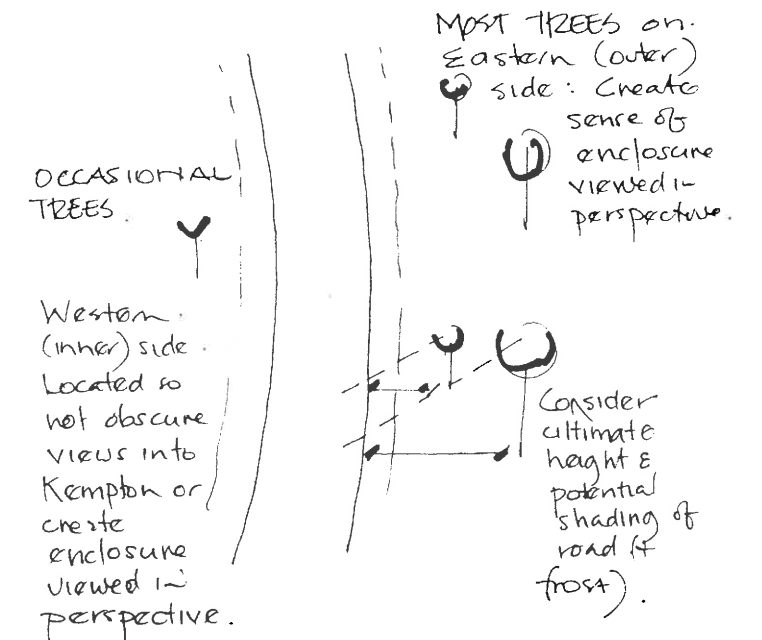 MOST TREES on.
Eastern (outer)
side: Create
sense of
enclosure
viewed in
perspective.
OCCASIONAL
TREES.
Western
(inner) side.
Located so
not obscure
views into
Kempton or
create
enclosure
viewed in
perspective.
Consider
ultimate
height &
potential
shading of
road (+
frost).